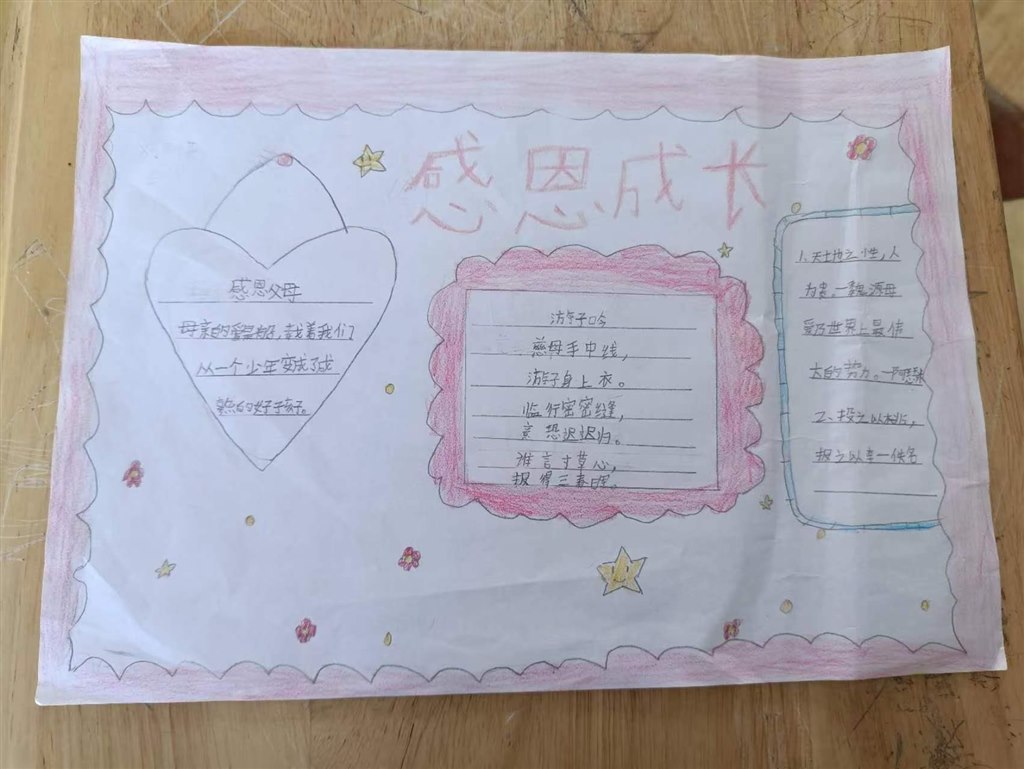 感恩成长
感恩父母
母亲的，载着我们
从一个少年变成了成
熟的好子孩子。
游子吟
慈母手中线，
游子身上衣。
临行密密缝，
意恐迟迟归。
谁言寸草心，
报得三春晖。
1.天地之性，人
为贵。一魏源母
爱乃世界上最伟
大的势力。一
2.投之以桃，
报之以李一佚名